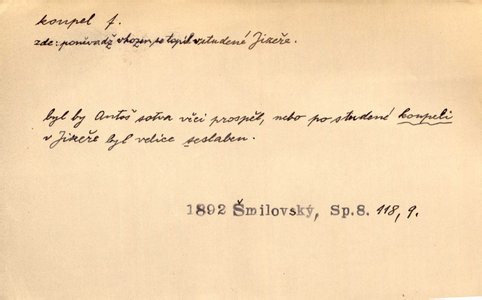 koupel f.
zde: poněvadž v hozen se topil v studené Jizeře.
byl by Antoš sotva věci prospěl, nebo po studené koupeli
v Jizeře byl velice seslaben.
1892 Šmilovský, Sp.8. 118, 9.